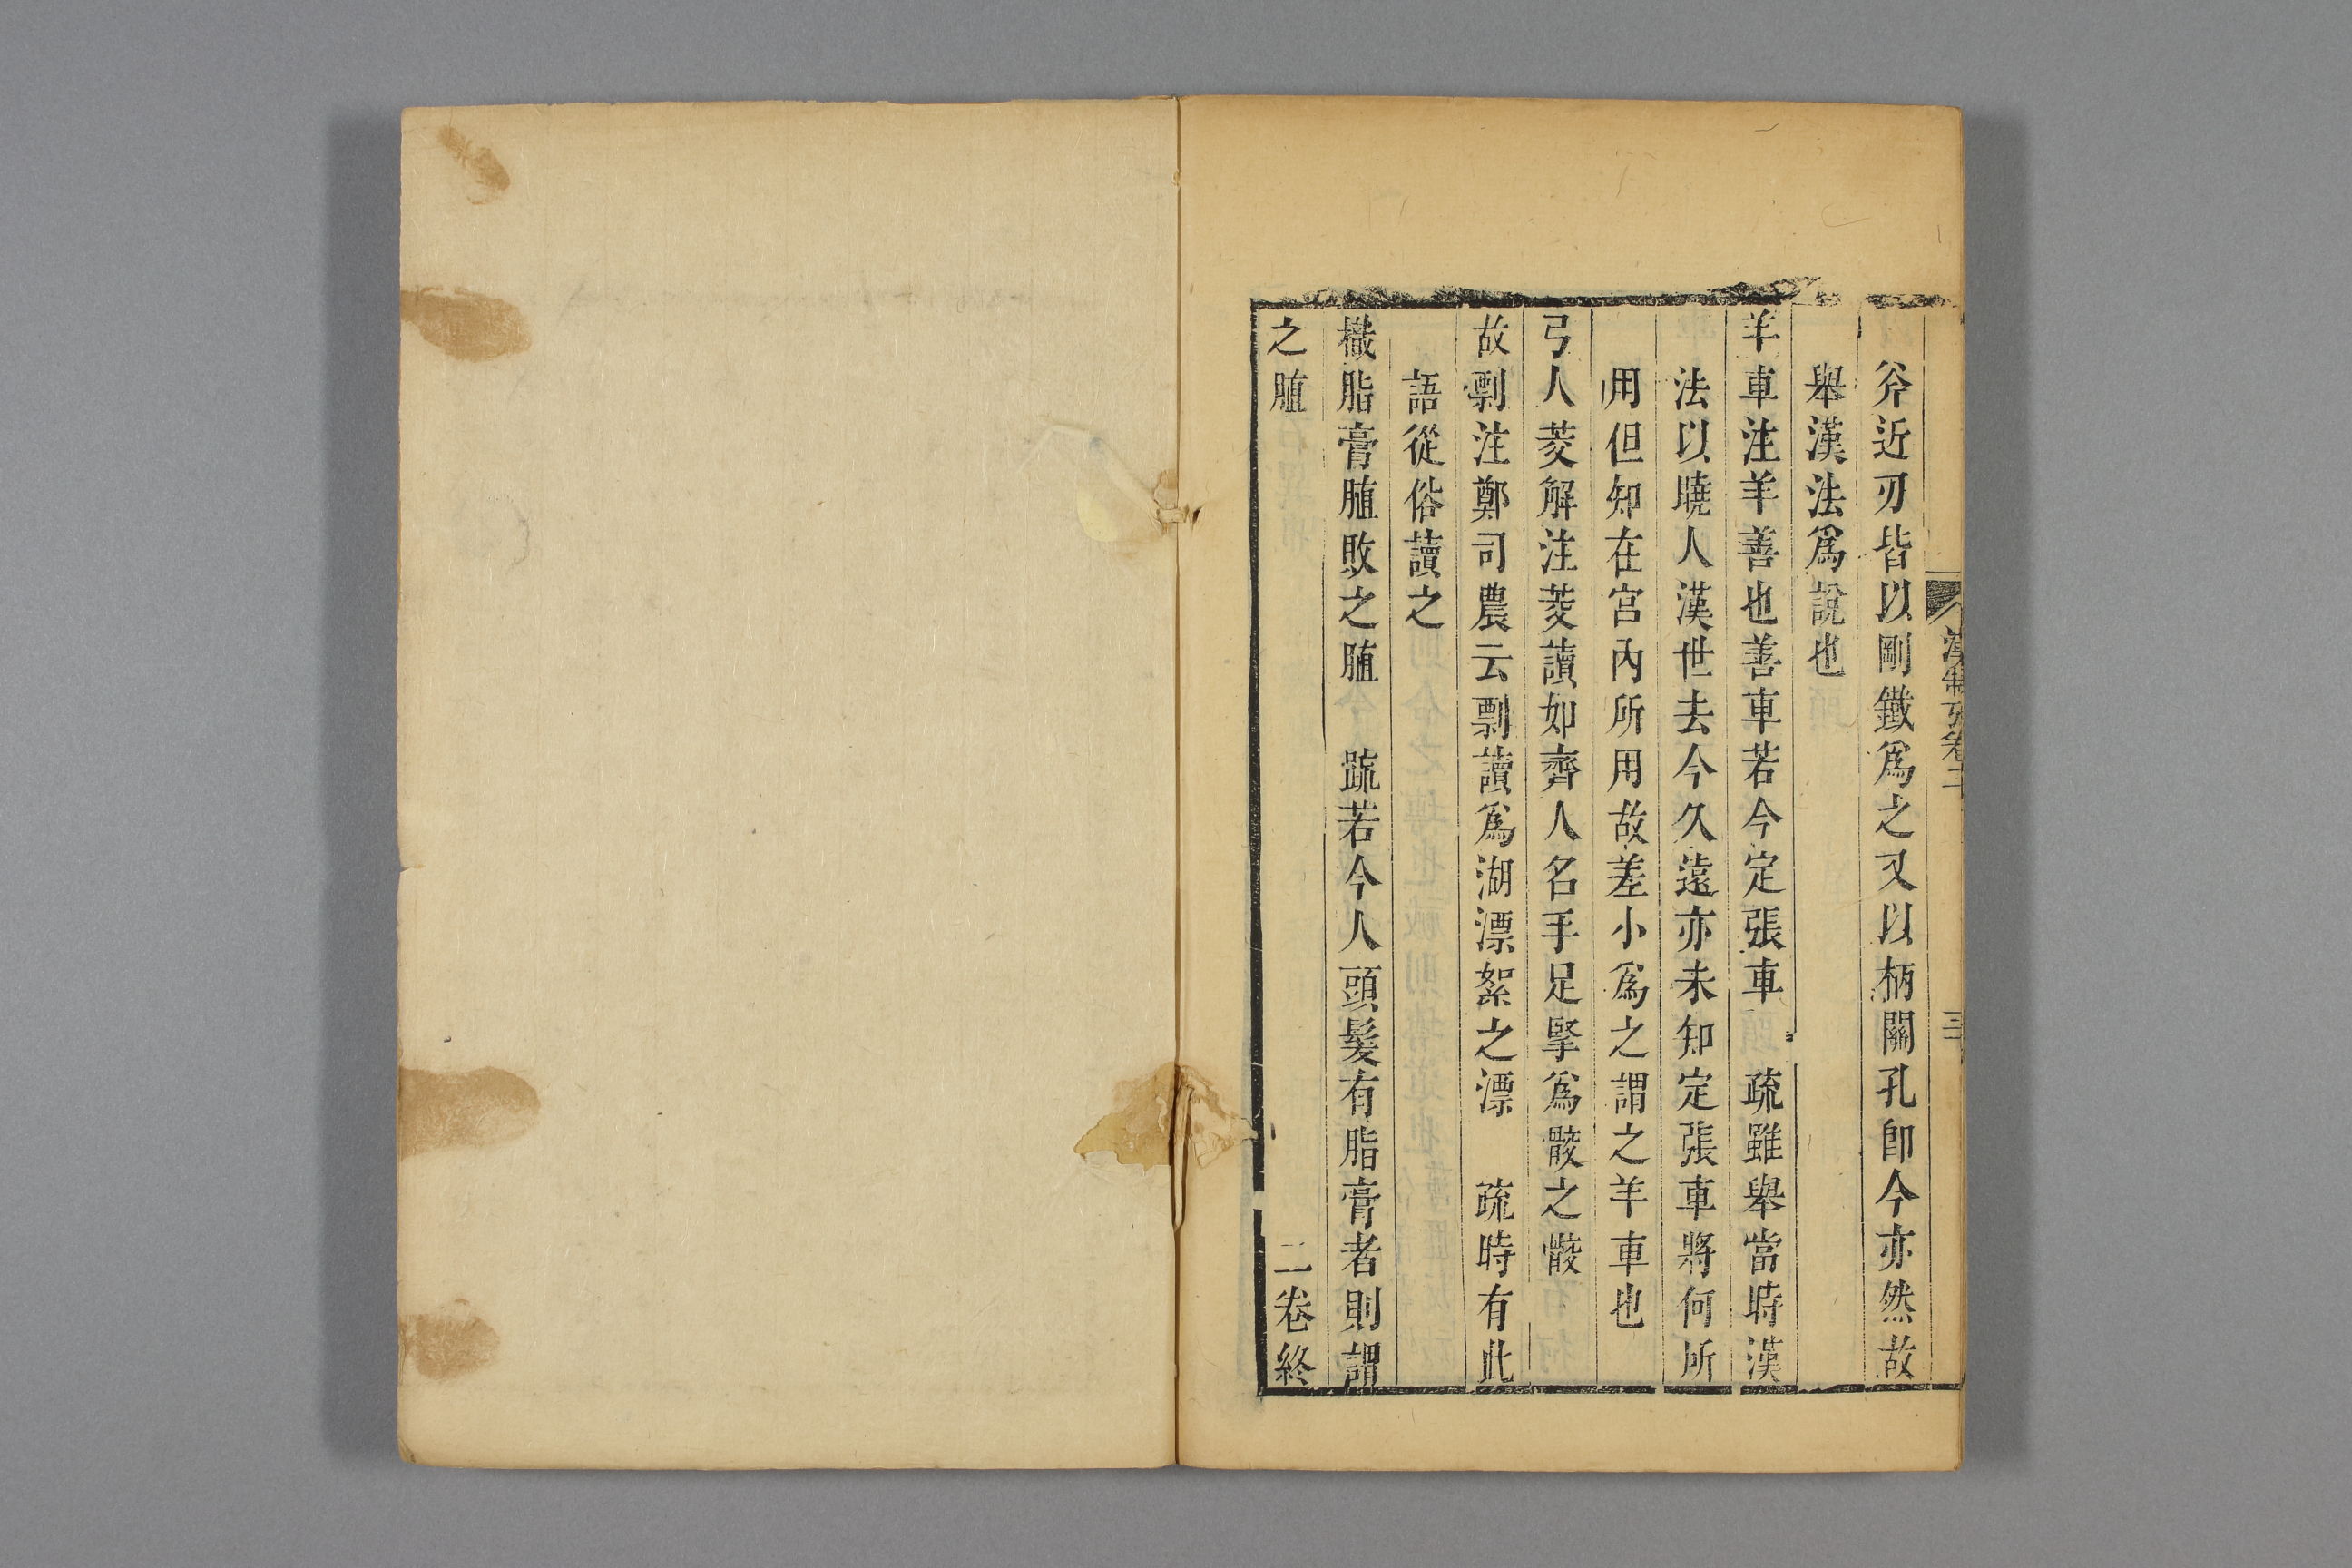 漢制攷卷二 三
斧近刃皆以剛鐵爲之又以柄關孔卽今亦然故
舉漢法爲說也
羊車注羊善也善車若今定張車 疏雖舉當時漢
法以曉人漢世去今久遠亦未知定張車將何所
用但知在宮內所用故差小爲之謂之羊車也
弓人茭解注茭讀如齊人名手足掔爲骹之骹
故剽注鄭司農云剽讀爲湖漂絮之漂 疏時有此
語從俗讀之
樴脂膏䐈敗之䐈 䟽若今人頭髮有脂膏者則謂
之䐈 二卷終